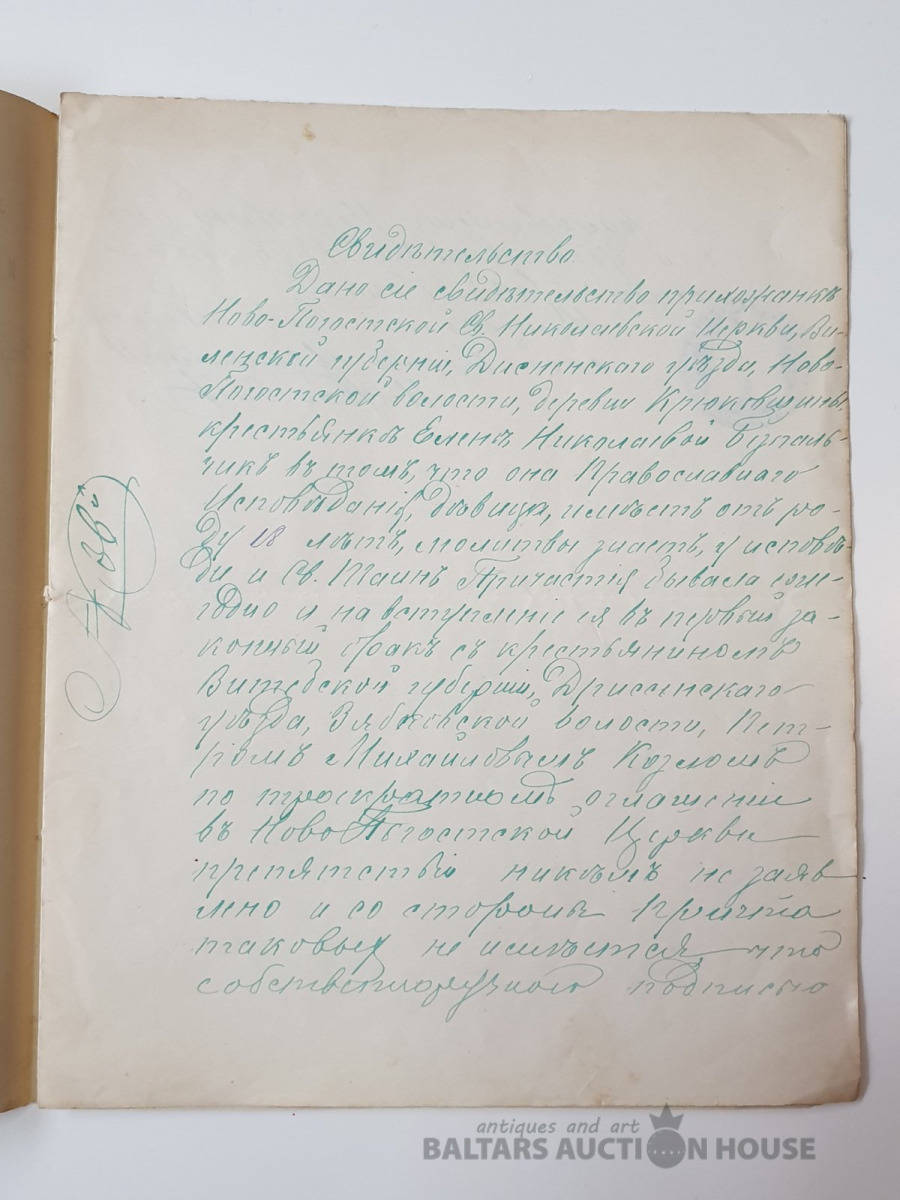 Свидѣтельство.
Дано сіе свидѣтельство прихожанкѣ
Ново-Погостской Св. Николаевской Церкви, Ви-
ленской губерніи, Дисненскаго уѣзда, Ново-
Погостской волости, деревни Крюковщины,
крестьянкѣ Еленѣ Николаевой
въ томъ, что она Православнаго
Исповѣданія, дѣвица, имѣетъ отъ ро-
ду 18 лѣтъ, молитвы знаетъ, у исповѣ-
ди и Св. Таинъ Причастія бывала еже-
годно и на вступленіе ея въ первый за-
конный бракъ съ крестьяниномъ
Витебской губерніи, Дриссенскаго
уѣзда, волости, Пет-
ромъ Михайловымъ Козломъ
по троекратномъ оглашеніи
въ Ново Погостской Церкви
препятствій никѣмъ не заяв
лено и со стороны Причта
таковых не имѣется, что
собственноручною подписью
antiques and art
BALTARS AUCTION HOUSE